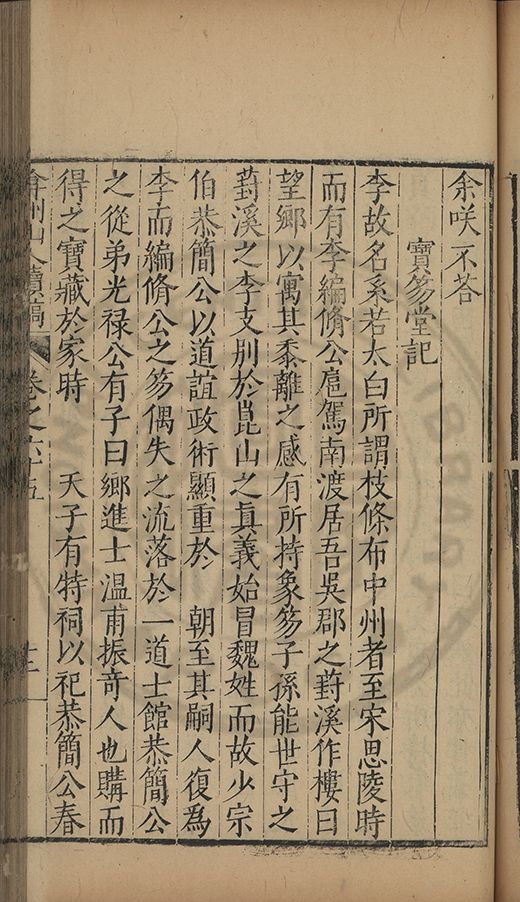 余咲不答
寶笏堂記
李故名系若太白所謂枝條布中州者至宋思陵時
而有李編脩公扈駕南渡居吾吳郡之葑溪作樓曰
望鄉以寓其黍離之感有所持象笏子孫能世守之
葑溪之李支別於崑山之真義始冒魏姓而故少宗
伯恭簡公以道誼政術顯重於　朝至其嗣人復為
李而編脩公之笏偶失之流落於一道士館恭簡公
之從弟光禄公有子曰鄉進士溫甫振奇人也購而
得之寶藏於家時　天子有特祠以祀恭簡公春
弇州山人續稿 卷之六十五